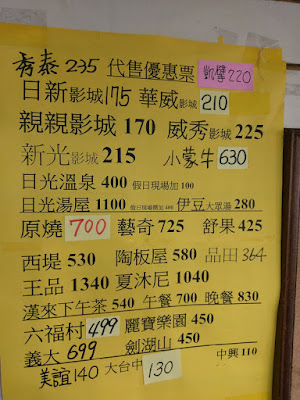 秀泰 235 代售優惠票 凱擘220
日新影城175 華威影城 210
親親影城 170 威秀影城 225
新光影城 215 小蒙牛 630
日光溫泉 400 假日現場加 100
日光湯屋 1100 假日現場需加 400 伊豆大眾湯 280
原燒 700 藝奇 725 舒果 425
西堤 530 陶板屋 580 品田 364
王品 1340 夏沐尼 1040
漢來下午茶 540 午餐 700 晚餐 830
六福村 499 麗寶樂園 450
義大 699 劍湖山 450 中興 110
美誼140 大台中 130